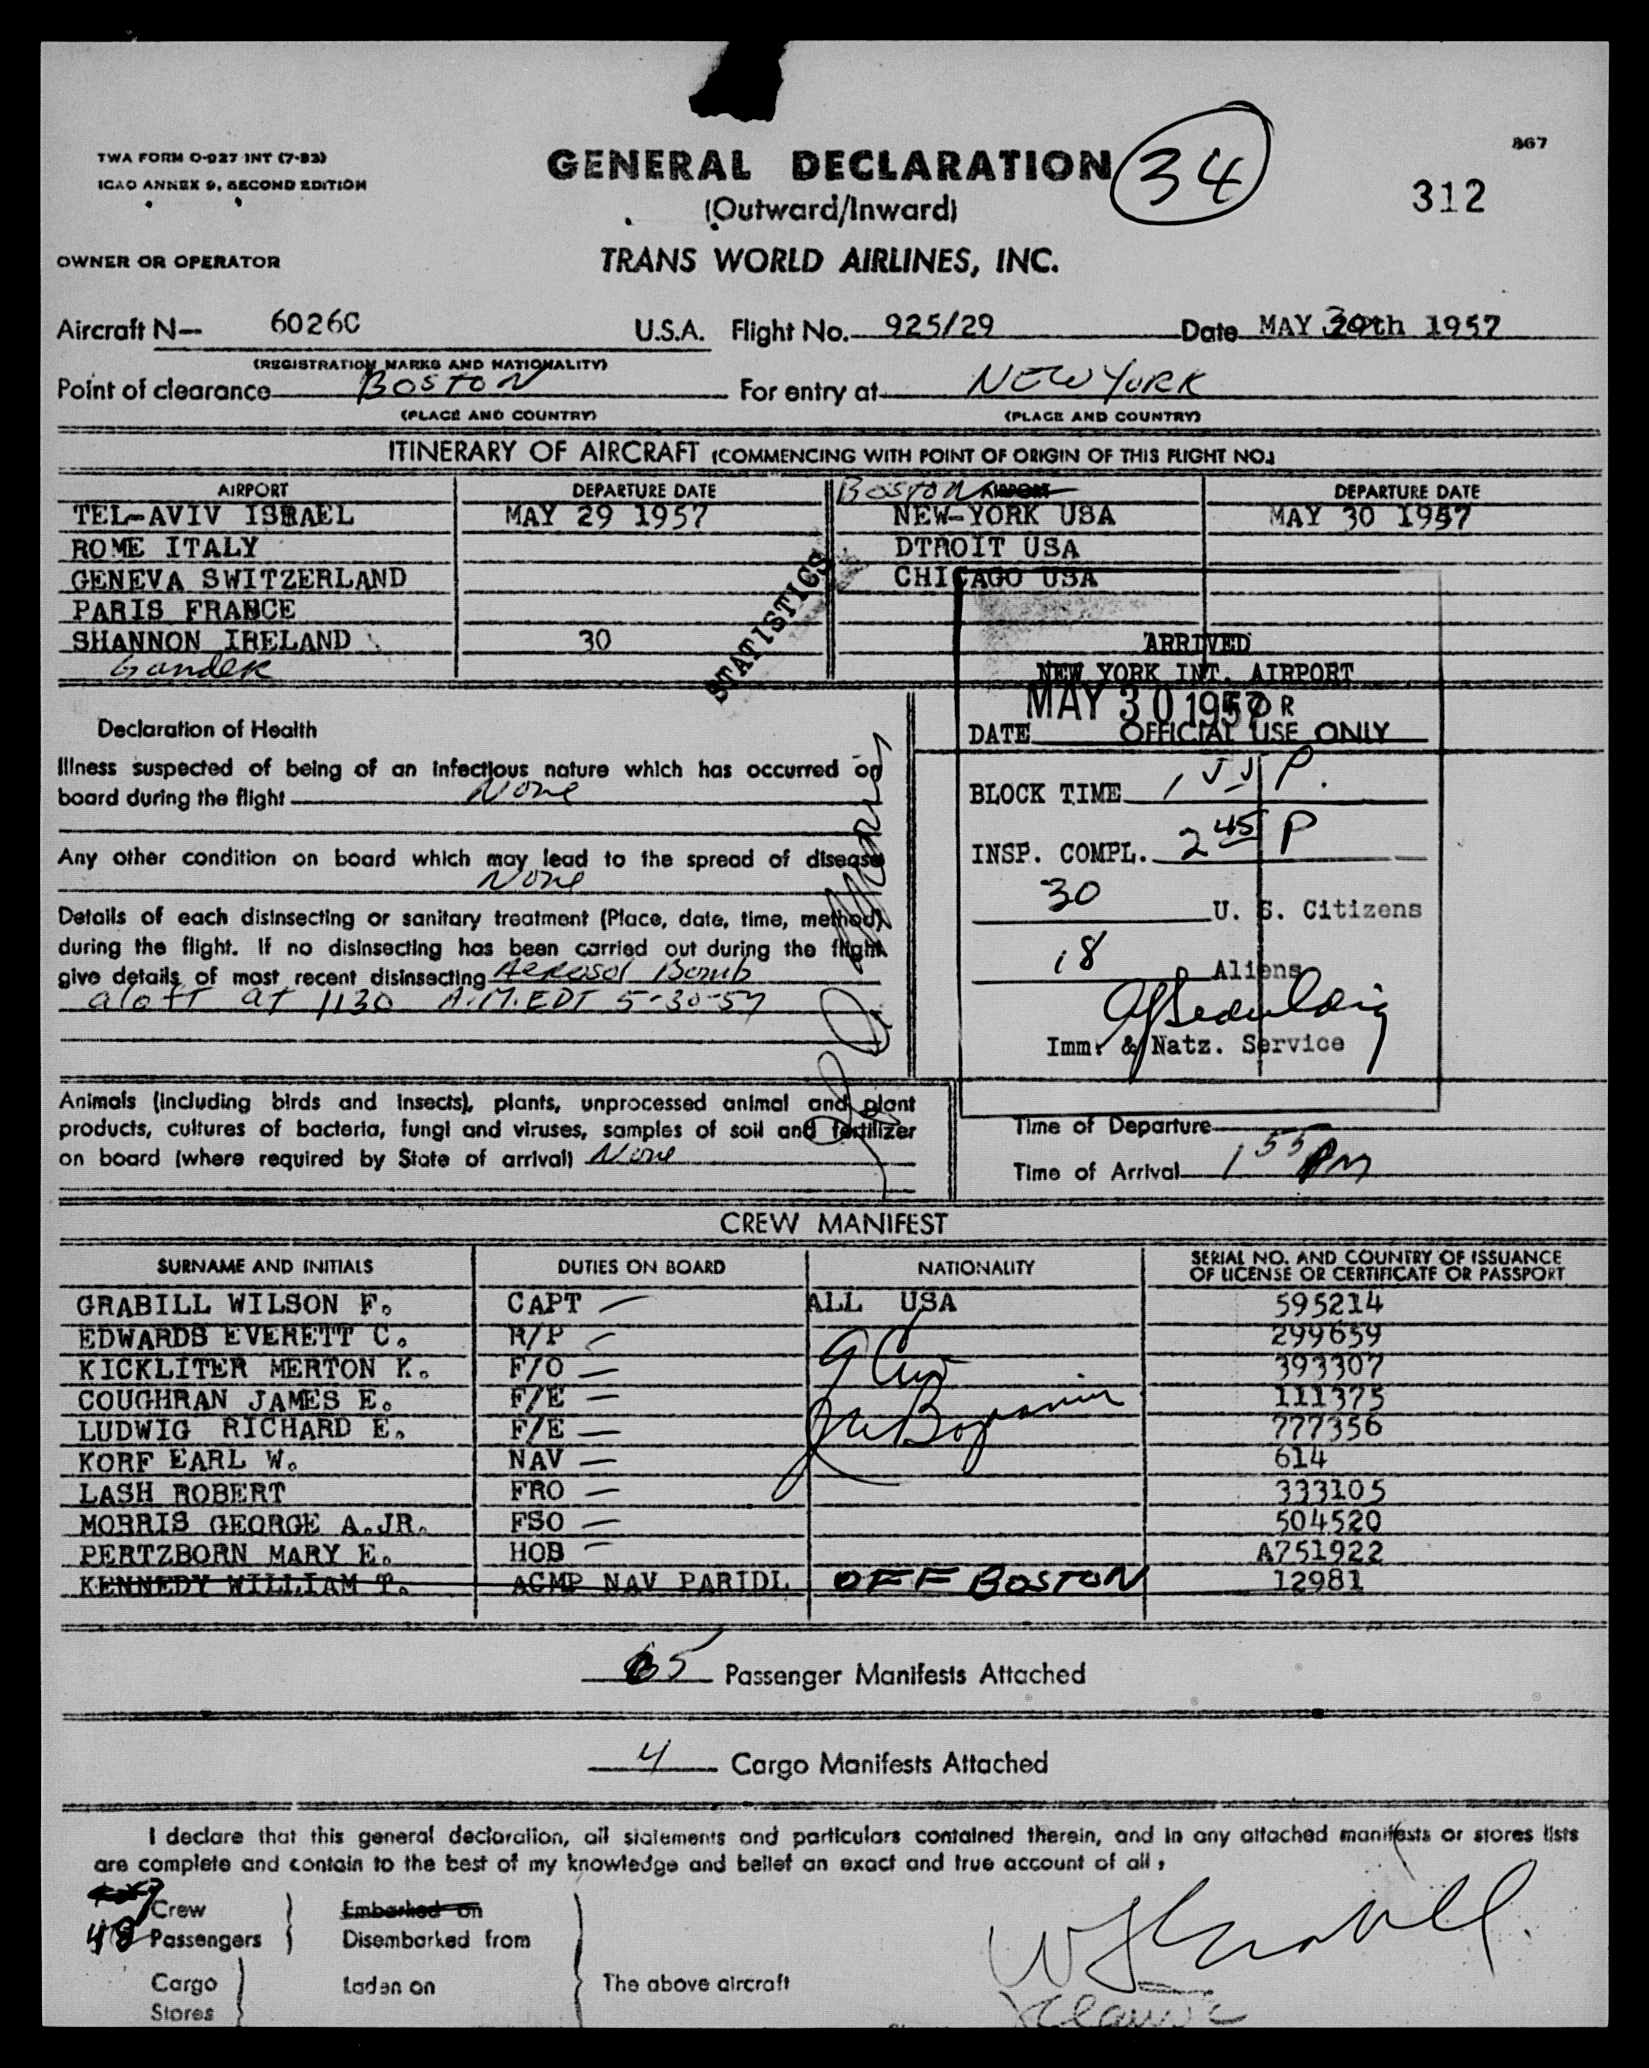 TWA FORM O-927 INT (7-53)
ICAO ANNEX 9, SECOND EDITION
867
GENERAL DECLARATION
34
312
(Outward/Inward)
OWNER OR OPERATOR
TRANS WORLD AIRLINES, INC.
Aircraft N— 6026C U.S.A. Flight No. 925/29 Date MAY 30th 1957
(REGISTRATION MARKS AND NATIONALITY)
Point of clearance BOSTON For entry at NEW YORK
(PLACE AND COUNTRY) (PLACE AND COUNTRY)
ITINERARY OF AIRCRAFT (COMMENCING WITH POINT OF ORIGIN OF THIS FLIGHT NO.)
AIRPORT DEPARTURE DATE Boston AIRPORT DEPARTURE DATE
TEL-AVIV ISRAEL MAY 29 1957 NEW-YORK USA MAY 30 1957
ROME ITALY DTROIT USA
GENEVA SWITZERLAND CHICAGO USA
PARIS FRANCE
SHANNON IRELAND 30
Gander
STATISTICS
ARRIVED
NEW YORK INT. AIRPORT
MAY 30 1957
DATE
FOR
OFFICIAL USE ONLY
BLOCK TIME 1 55 P.
INSP. COMPL. 2 45 P
30 U. S. Citizens
18 Aliens
Imm. & Natz. Service
Declaration of Health
Illness suspected of being of an infectious nature which has occurred on
board during the flight None
Any other condition on board which may lead to the spread of disease
None
Details of each disinsecting or sanitary treatment (Place, date, time, method)
during the flight. If no disinsecting has been carried out during the flight
give details of most recent disinsecting Aerosol Bomb
aloft at 1130 A.M. EDT 5-30-57
Animals (including birds and insects), plants, unprocessed animal and plant
products, cultures of bacteria, fungi and viruses, samples of soil and fertilizer
on board (where required by State of arrival) None
Time of Departure
Time of Arrival 1 55 PM
CREW MANIFEST
SURNAME AND INITIALS DUTIES ON BOARD NATIONALITY SERIAL NO. AND COUNTRY OF ISSUANCE
OF LICENSE OR CERTIFICATE OR PASSPORT
GRABILL WILSON F. CAPT ALL USA 595214
EDWARDS EVERETT C. R/P 299659
KICKLITER MERTON K. F/O 393307
COUGHRAN JAMES E. F/E 111375
LUDWIG RICHARD E. F/E 777356
KORF EARL W. NAV 614
LASH ROBERT FRO 333105
MORRIS GEORGE A.JR. FSO 504520
PERTZBORN MARY E. HOS A751922
KENNEDY WILLIAM T. ACMP NAV PARIDL OFF BOSTON 12981
5 Passenger Manifests Attached
4 Cargo Manifests Attached
I declare that this general declaration, all statements and particulars contained therein, and in any attached manifests or stores lists
are complete and contain to the best of my knowledge and belief an exact and true account of all,
Crew Embarked on
48 Passengers Disembarked from
Cargo Laden on The above aircraft
Stores